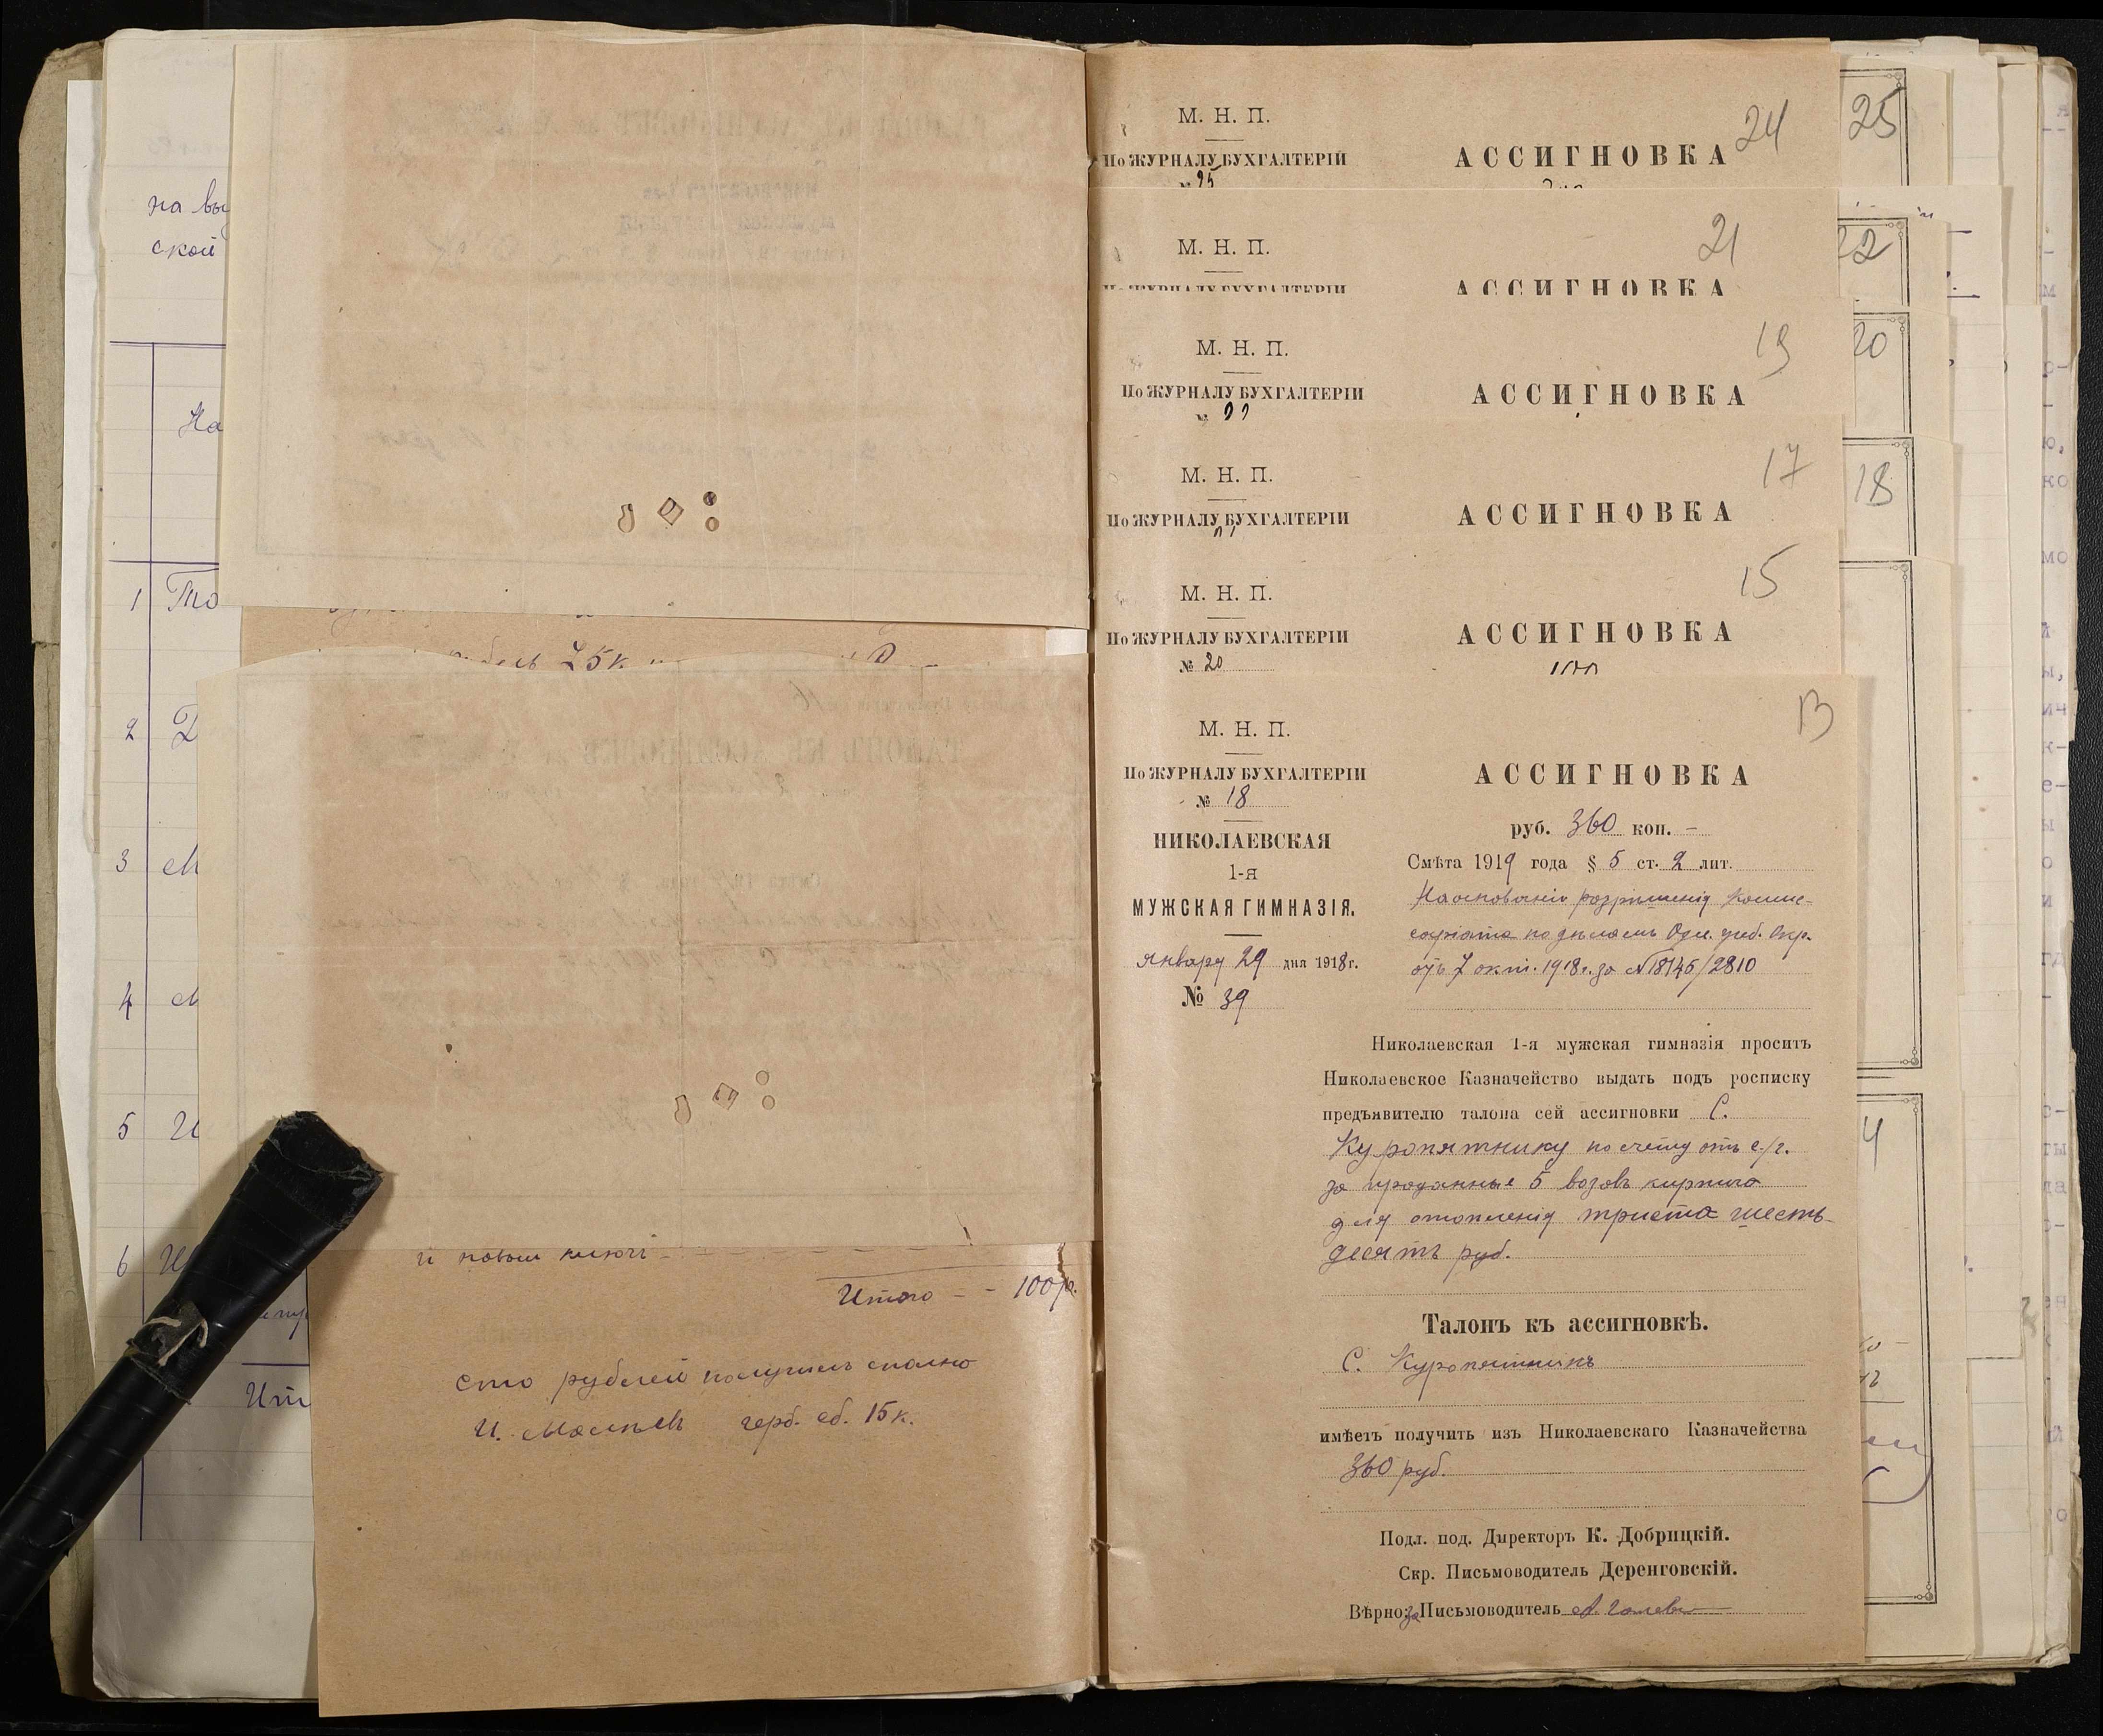 на вы
ской
На
1 То
2
3 М
4 М
5 И
6
Ит
75к
и новый ключ
Итого - - 100 р.
Сто рублей получилъ сполна
И. герб. сб. 15 к.
24
25
М. Н. П.
По ЖУРНАЛУ БУХГАЛТЕРІИ
АССИГНОВКА
№ 25
21
22
М. Н. П.
АССИГНОВКА
19
20
М. Н. П.
По ЖУРНАЛУ БУХГАЛТЕРІИ
АССИГНОВКА
№
17
18
М. Н. П.
По ЖУРНАЛУ БУХГАЛТЕРІИ
АССИГНОВКА
15
М. Н. П.
По ЖУРНАЛУ БУХГАЛТЕРІИ
АССИГНОВКА
№ 20
13
М. Н. П.
По ЖУРНАЛУ БУХГАЛТЕРІИ
№ 18
НИКОЛАЕВСКАЯ
1-я
МУЖСКАЯ ГИМНАЗІЯ.
января 29 дня 1918 г.
№ 39
АССИГНОВКА
руб. 360 коп. -
Смѣта 1919 года § 5 ст. 2 лит.
На основаніи разрѣшенія Комис-
саріата по дѣламъ Одес. учеб. Окр.
отъ 7 окт. 1918 г. за № 18145/2810
Николаевская 1-я мужская гимназія проситъ
Николаевское Казначейство выдать подъ росписку
предъявителю талона сей ассигновки С.
Куропятнику по счету отъ с/г.
за проданные 5 возовъ кирпича
для отопленія триста шесть-
десятъ руб.
Талонъ къ ассигновкѣ.
С. Куропятникъ
имѣетъ получить изъ Николаевскаго Казначейства
360 руб.
Подл. под. Директоръ К. Добрицкій.
Скр. Письмоводитель Деренговскій.
Вѣрно: за Письмоводитель
4